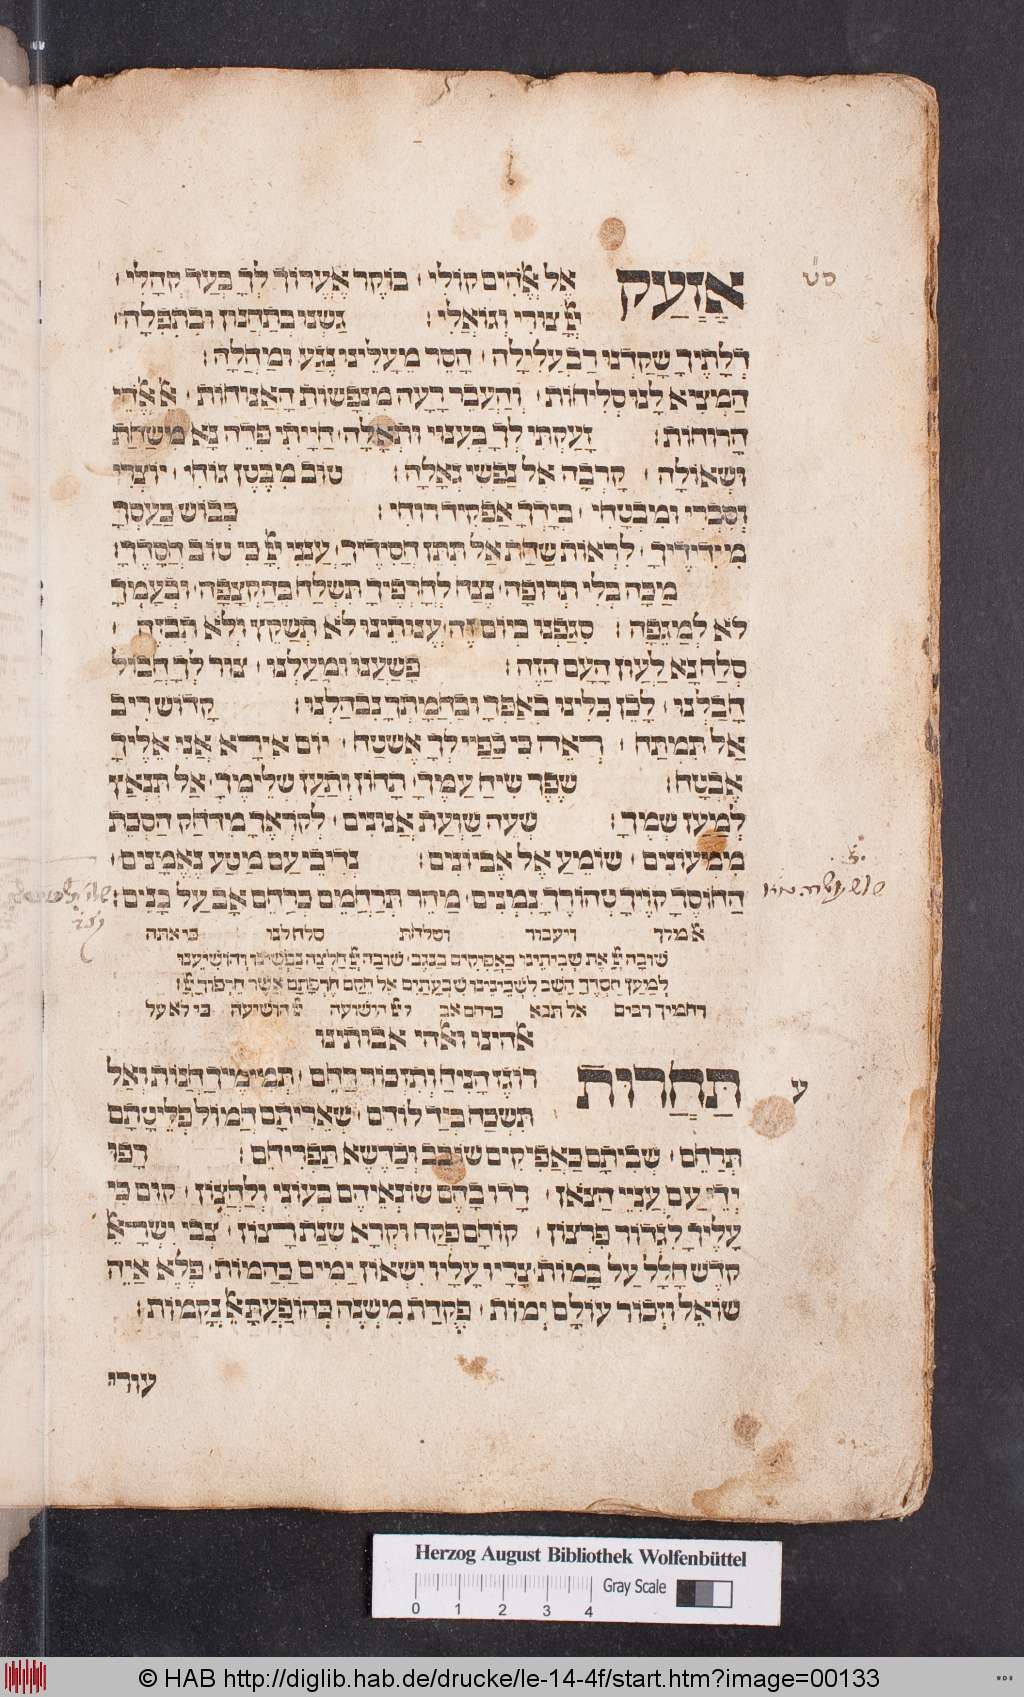 אֶזְעַק אֶל אֱהִים קוֹלִי · בּוֹקֶר אֶעֱרוֹךְ לְךָ בְּעַד קְהָלִי ·
צוּרִי וְגוֹאֲלִי : גַּשְׁנוּ בְתַחֲנוּן וּבִתְפִלָּה ·
דְּלָתֶיךָ שָׁקַדְנוּ רַב עֲלִילָה · הָסֵר מֵעָלֵינוּ נֶגַע וּמַחֲלָה :
הַמְצִיא לָנוּ סְלִיחוֹת · וְהַעֲבֵר רָעָה מִנְּפָשׁוֹת הָאֲנִיחוֹת ·
הָרוּחוֹת : זָעַקְתִּי לְךָ בְעִנּוּי וְתָאֳלָה · חַיָּיתִי פְּדֵה נָא מִשַּׁחַת
וּשְׁאוֹלָה · קָרְבָה אֶל נַפְשִׁי גְאָלָהּ : טוֹב מִבֶּטֶן גּוֹחִי · יוֹצְרִי
וְסִבְרִי וּמִבְטָחִי · בְּיָדְךָ אַפְקִיד רוּחִי : כְּבוֹשׁ כַּעַסְךָ
מִידִידֶיךָ · לִרְאוֹת שַׁחַת אַל תִּתֵּן חֲסִידֶיךָ · עֲנֵנִי כִּי טוֹב חַסְדֶּךָ :
מַכָּה בְּלִי תְרוּפָה · נֶצַח לִמְחָרְפֶיךָ תִּשְׁלַח בְּהַקְצָפָה · וּבְעַמְּךָ
לֹא לְמַגֵּפָה : סִגַּפְנוּ בְּיוֹם זֶה · עֱנוּתֵינוּ לֹא תְשַׁקֵּץ וְלֹא תִבְזֶה ·
סְלַח נָא לַעֲוֹן הָעָם הַזֶּה : פָּשַׁעְנוּ וּמָעַלְנוּ · צוּר לְךָ הֲבֵיל
חָבַלְנוּ · לָכֵן כָּלִינוּ בְאַפֶּךָ וּבַחֲמָתְךָ נִבְהָלְנוּ : קָדוֹשׁ רִיב
אַל תִּמְתַּח · רְאֵה כִּי כַפַּיי לְךָ אֶשְׁטַח · יוֹם אִירָא אֲנִי אֵלֶיךָ
אֶבְטָח : שֶׁפֶךְ שִׂיחַ עַמֶּךָ · תָּחוֹן וְתַעַן שְׁלֵימֶיךָ · אַל תִּנְאַץ
לְמַעַן שְׁמֶךָ : שְׁעֵה שַׁוְעַת אֲנוּנִים · לְקוֹרְאֶךָ מִדּוֹחַק הַסְכֵּת
מִמְּעוֹנִים · שׁוֹמֵעַ אֶל אֶבְיוֹנִים : נְדִיבֵי עַם מַטַּע נֶאֱמָנִים ·
קַוֶּיךָ טְהוֹרֶיךָ נִמְנִים · מַהֵר תְּרַחֲמֵם כְּרַחֵם אָב עַל בָּנִים :
מלך ויעבור וסלחת סלח לנו כי אתה
שׁוּבָה אֶת שְׁבִיתֵינוּ כַּאֲפִיקִים בַּנֶּגֶב · שׁוּבָה חַלְּצָה נַפְשֵׁינוּ וְהוֹשִׁיעֵנוּ
לְמַעַן חַסְדֶּךָ הָשֵׁב לִשְׁכֵינֵינוּ שִׁבְעָתַיִם אֶל חֵקָם חֶרְפָּתָם אֲשֶׁר חֵירְפוּךָ :
רחמיך רבים אל תבא כרחם אב הושיעה הושיעה כי לא על
אהינו ואהי אבותינו
תַּחֲרוּת רוֹגֶז הָנִיחַ וְתִזְכּוֹר רַחֵם · תְּמִימֶיךָ חֲנוֹת וְאַל
תִּשְׁכַּח בְּיַד לוֹחֵם · שְׁאֵרִיתָם חֲמוֹל פְּלֵיטָתָם
תְּרַחֵם · שְׁבִיתָם כַּאֲפִיקִים שׁוֹבֵב וּכְדֶשֶׁא תַּפְרִיחֵם : רָפוּ
יְדֵי עַם עֲנִיֵּי הַצֹּאן · רָדוּ בָהֶם שׂוֹנְאֵיהֶם בְּעוֹנִי וְלַחֲצוֹן · קוּם כִּי
עָלֶיךָ לִגְדּוֹר פִּרְצוֹן · קוֹחָם פְּקַח וּקְרָא שְׁנַת רָצוֹן · צְבִי יִשְׂרָאֵ
קֹדֶשׁ חָלָל עַל בָּמוֹת · צָרָיו עָלָיו יִשְׁאוּן יַמִּים כַּהֲמוֹת · פֶּלֶא אַיֵּה
שׁוֹאֵל וּזְכוֹר עוֹלָם יְמוֹת · פְּקֻדַּת מִשְׁנֶה בְּהוֹפָעַת נְקָמוֹת :
עורי
ע
Herzog August Bibliothek Wolfenbüttel
0 1 2 3 4
Gray Scale
© HAB http://diglib.hab.de/drucke/le-14-4f/start.htm?image=00133